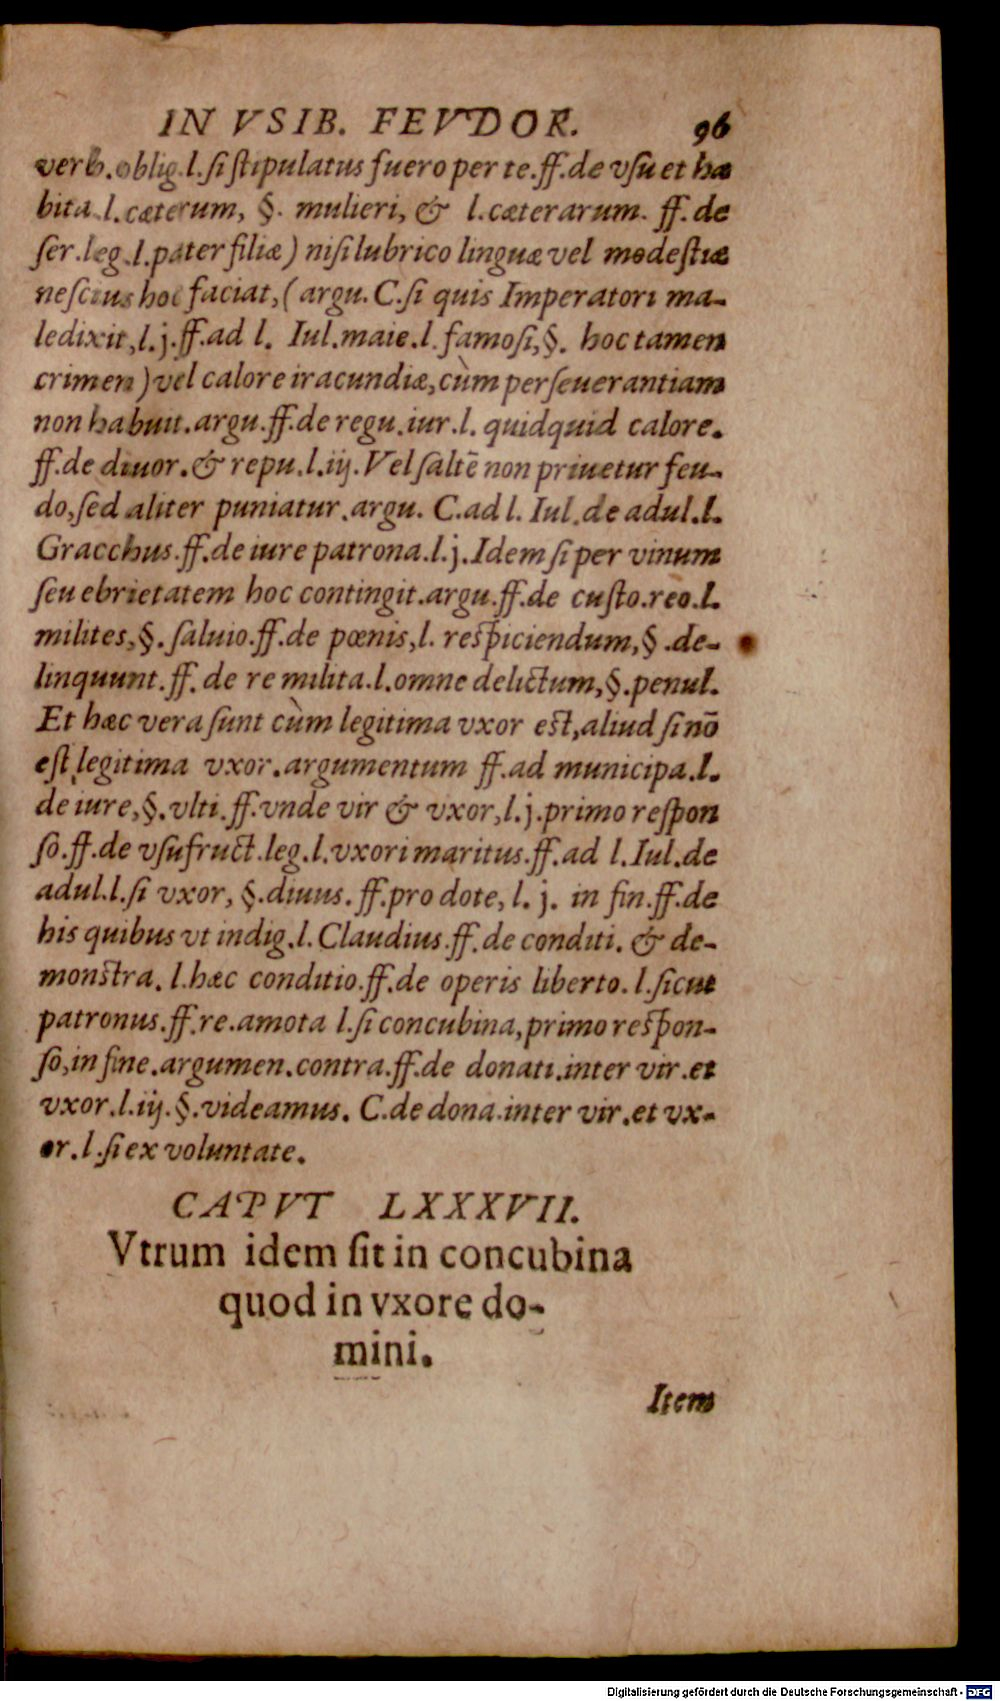 IN VSIB. FEVDOR. 96
verb. oblig. l. ſi ſtipulatus fuero per te. ff. de vſu et ha
bita. l. cæterum, §. mulieri, & l. cæterarum. ff. de
ſer. leg. l. pater filiæ) niſi lubrico linguæ vel modeſtiæ
neſcius hoc faciat, (argu. C. ſi quis Imperatori ma-
ledixit, l. j. ff. ad l. Iul. maie. l. famoſi, §. hoc tamen
crimen) vel calore iracundiæ, cùm perſeuerantiam
non habuit. argu. ff. de regu. iur. l. quidquid calore.
ff. de diuor. & repu. l. iij. Vel ſaltē non priuetur feu-
do, ſed aliter puniatur. argu. C. ad l. Iul. de adul. l.
Gracchus. ff. de iure patrona. l. j. Idem ſi per vinum
ſeu ebrietatem hoc contingit. argu. ff. de cuſto. reo. l.
milites, §. ſaluio. ff. de pœnis, l. reſpiciendum, §. de-
linquunt. ff. de re milita. l. omne delictum, §. penul.
Et hæc vera ſunt cùm legitima vxor eſt, aliud ſi nō
eſt legitima vxor. argumentum ff. ad municipa. l.
de iure, §. vlti. ff. vnde vir & vxor, l. j. primo reſpon
ſo. ff. de vſufruct. leg. l. vxori maritus. ff. ad l. Iul. de
adul. l. ſi vxor, §. diuus. ff. pro dote, l. j. in fin. ff. de
his quibus vt indig. l. Claudius. ff. de conditi. & de-
monſtra. l. hæc conditio. ff. de operis liberto. l. ſicut
patronus. ff. re. amota l. ſi concubina, primo reſpon-
ſo, in fine. argumen. contra. ff. de donati. inter vir. et
vxor. l. iij. §. videamus. C. de dona. inter vir. et vx-
or. l. ſi ex voluntate.
CAPVT LXXXVII.
Vtrum idem ſit in concubina
quod in vxore do-
mini.
Item
Digitalisierung gefördert durch die Deutsche Forschungsgemeinschaft - DFG